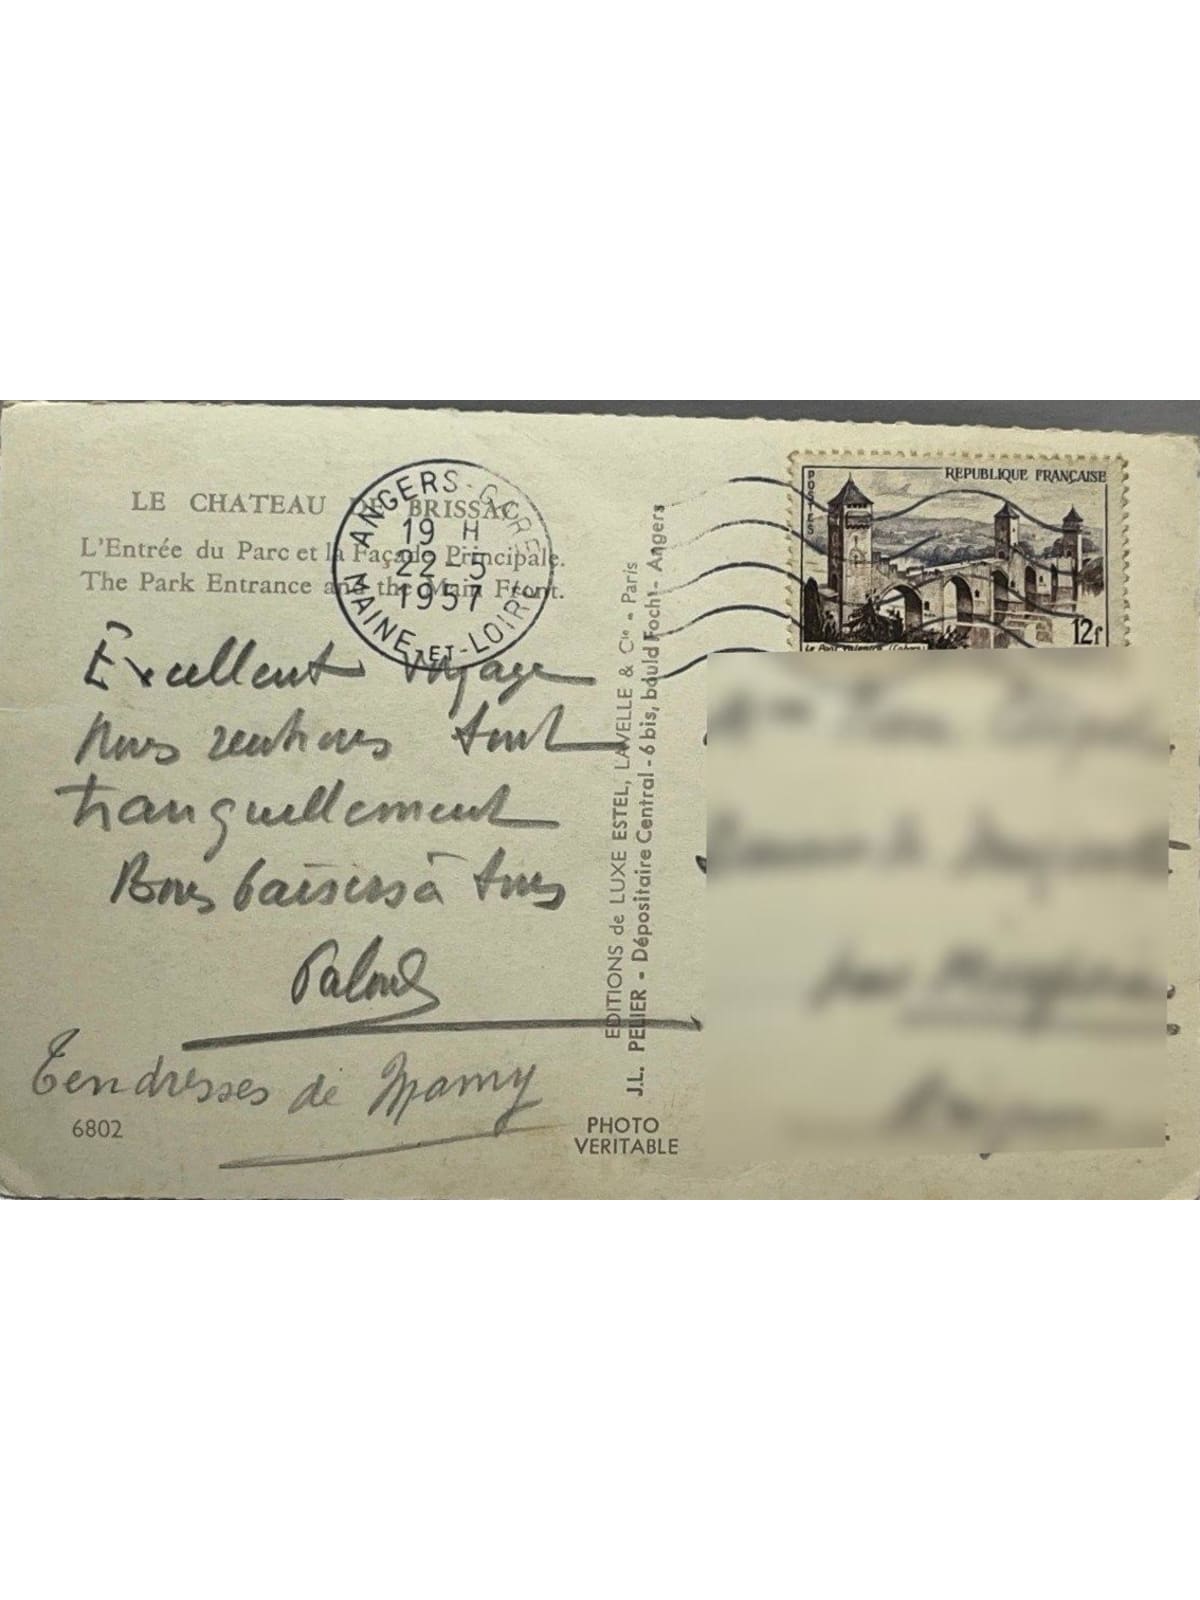 LE CHATEAU DE BRISSAC
L'Entrée du Parc et la Façade Principale.
The Park Entrance and the Main Front.
ANGERS-GARE
19 H
22-5
1957
MAINE-ET-LOIRE
POSTES
REPUBLIQUE FRANÇAISE
12f
Le Pont Valentré (Cahors)
Excellent voyage
Nous rentrons tout
tranquillement
Bons baisers à tous
Tendresses de Mamy
6802
EDITIONS de LUXE ESTEL, LAVELLE & Cie - Paris
J.L. PELIER - Dépositaire Central - 6 bis, bould Foch - Angers
PHOTO
VERITABLE